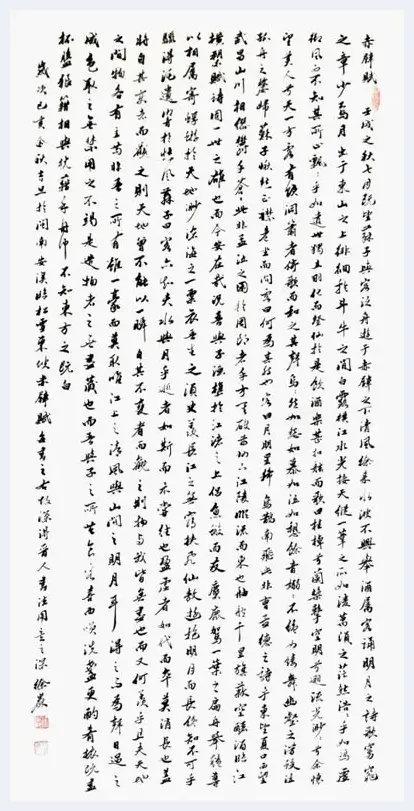 赤壁賦 壬戌之秋七月既望蘇子與客泛舟遊于赤壁之下清風徐來水波不興舉酒屬客誦明月之詩歌窈窕
之章少焉月出于東山之上徘徊於斗牛之間白露橫江水光接天縱一葦之所如凌萬頃之茫然浩浩乎如馮虛
御風而不知其所止飄飄乎如遺世獨立羽化而登仙於是飲酒樂甚扣舷而歌曰桂棹兮蘭槳擊空明兮溯流光渺渺兮余懷
望美人兮天一方客有吹洞簫者倚歌而和之其聲嗚嗚然如怨如慕如泣如訴餘音嫋嫋不絕如縷舞幽壑之潛蛟泣
孤舟之嫠婦蘇子愀然正襟危坐而問客曰何為其然也客曰月明星稀烏鵲南飛此非孟德之詩乎東望夏口西望
武昌山川相繆鬱乎蒼蒼此非孟德之困於周郎者乎方其破荊州下江陵順流而東也舳艫千里旌旗蔽空釃酒臨江
橫槊賦詩固一世之雄也而今安在哉況吾與子漁樵於江渚之上侶魚蝦而友麋鹿駕一葉之扁舟舉匏尊
以相屬寄蜉蝣於天地渺滄海之一粟哀吾生之須臾羨長江之無窮挾飛仙以遨遊抱明月而長終知不可乎
驟得託遺響於悲風蘇子曰客亦知夫水與月乎逝者如斯而未嘗往也盈虛者如代而卒莫消長也蓋
將自其變者而觀之則天地曾不能以一瞬自其不變者而觀之則物與我皆無盡也而又何羨乎且夫天地
之間物各有主苟非吾之所有雖一毫而莫取惟江上之清風與山間之明月耳得之而為聲目遇之
成色取之無禁用之不竭是造物者之無盡藏也而吾與子之所共食客喜而笑洗盞更酌肴核既盡
杯盤狼籍相與枕藉乎舟中不知東方之既白
歲次己亥金秋吉旦於閩南安溪臨松雪東坡赤壁賦書之右款深得晉人書法用意之深徐